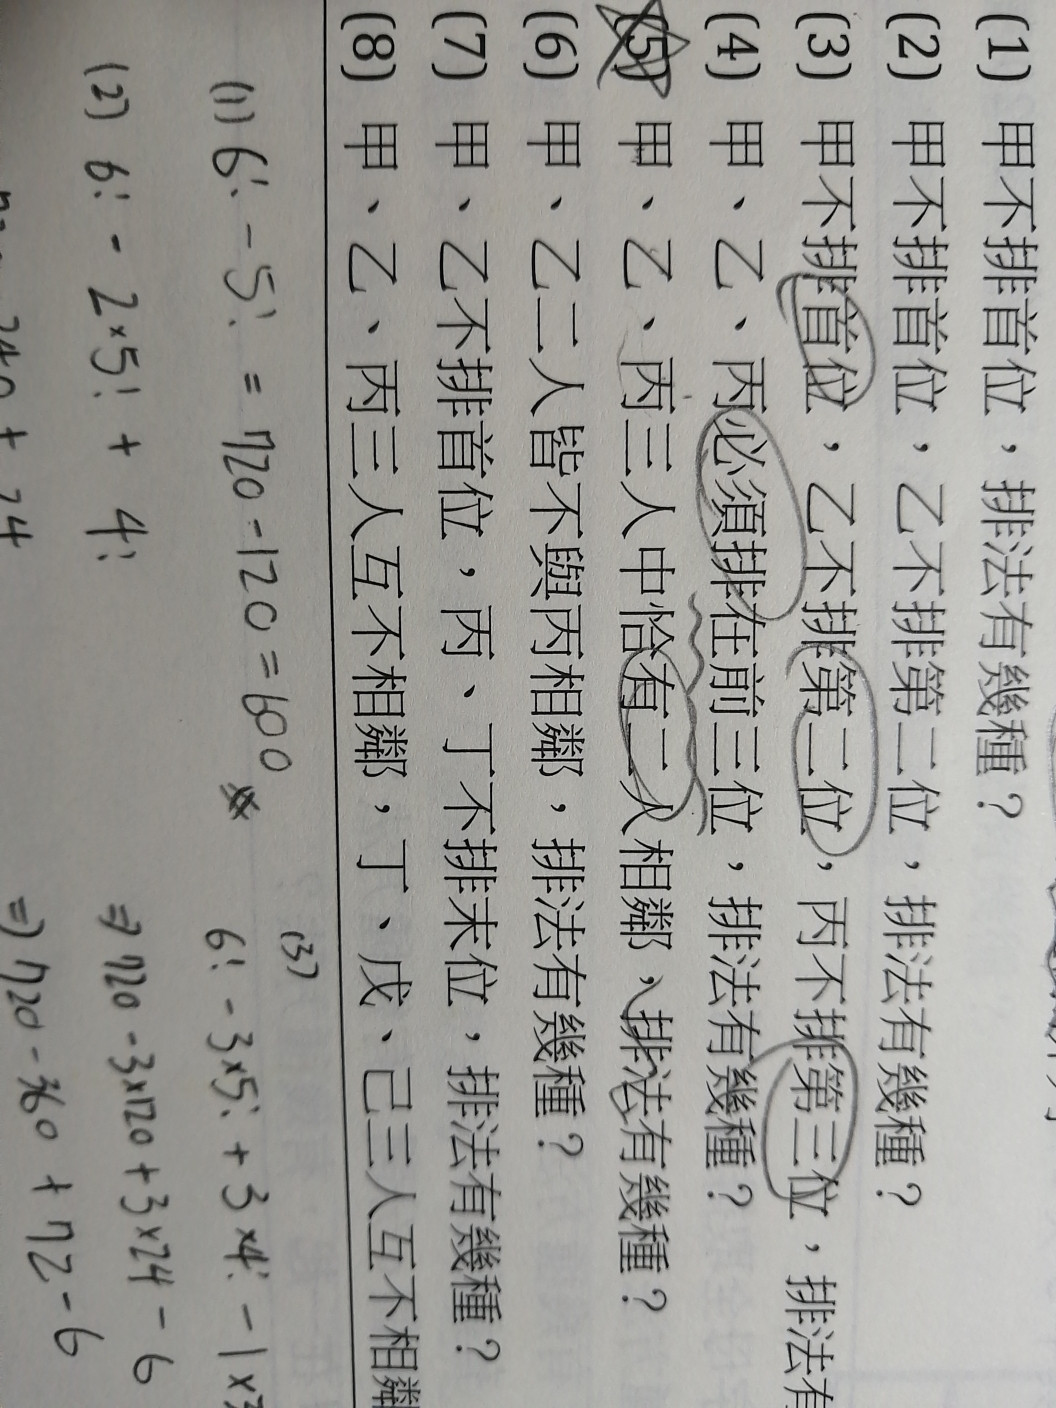 (1) 甲不排首位，排法有幾種？
(2) 甲不排首位，乙不排第二位，排法有幾種？
(3) 甲不排首位，乙不排第二位，丙不排第三位，排法有
(4) 甲、乙、丙必須排在前三位，排法有幾種？
(5) 甲、乙、丙三人中恰有二人相鄰，排法有幾種？
(6) 甲、乙二人皆不與丙相鄰，排法有幾種？
(7) 甲、乙不排首位，丙、丁不排末位，排法有幾種？
(8) 甲、乙、丙三人互不相鄰，丁、戊、己三人互不相鄰
(1) 6! - 5! = 720 - 120 = 600
(2) 6! - 2×5! + 4!
240 + 24
(3)
6! - 3×5! + 3×4! - 1×3
⇒ 720 - 3×120 + 3×24 - 6
⇒ 720 - 360 + 72 - 6